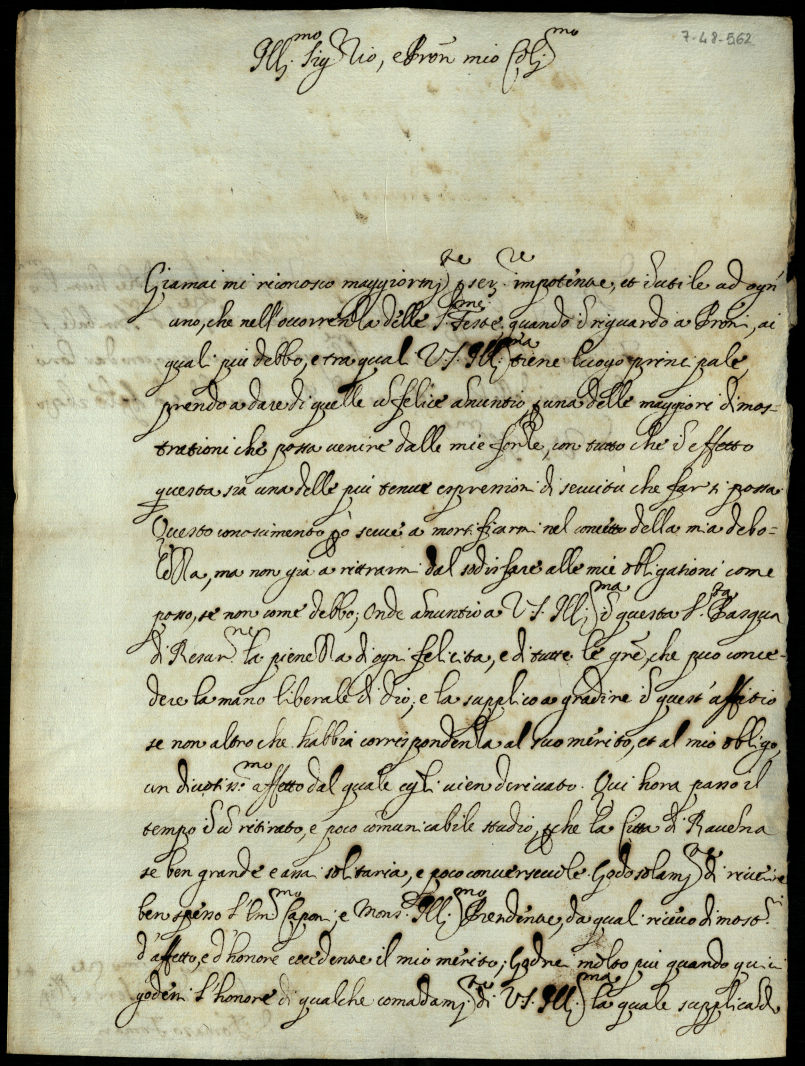 7-48-562
Ill.mo Sig.r Mio, e Pron mio Col.mo
Giamai mi riconosco maggiorm.te p ser.re impotente, et inutile ad ogn'
uno, che nell'occorrenza delle S.me Feste, quando in riguardo a Proni, ai
quali più debbo, e tra quali V.S. Ill.ma tiene luogo principale,
prendo a dare di quelle un felice anuntio, p una delle maggiori dimos-
trationi che possa venire dalle mie forze, con tutto che in effetto
questa sia una delle più tenue espressioni di servitù che far si possa.
Questo conoscimento pò serve a mortificarmi nel concetto della mia debo-
lezza, ma non già a ritrarmi dal sodisfare alle mie obligationi come
posso, se non come debbo; Onde anuntio a V.S. Ill.ma in questa S.ta Pasqua
di Resur.ne la pienezza di ogni felicita, e di tutte le grê, che può conce-
dere la mano liberale di Dio, e la supplico a gradire in quest'affitio
se non altro che habbia corrispondenza al suo merito, et al mio obligo,
un divotiss.mo affetto dal quale egli vien derivato. Qui hora passo il
tempo in un ritirato, e poco comunicabile studio, pche la Città di Ravenna
se ben grande è assai solitaria, e poco conversevole. Godo solam.te di riverire
ben spesso l'Em.mo Capponi, e Mons.r Ill.mo Presidente, da quali ricevo dimost.ni
d'affetto, e d'honore eccedente il mio merito; Godrei molto più quando qui ci
godessi l'honore di qualche comandam.to di V.S. Ill.ma la quale supplicando